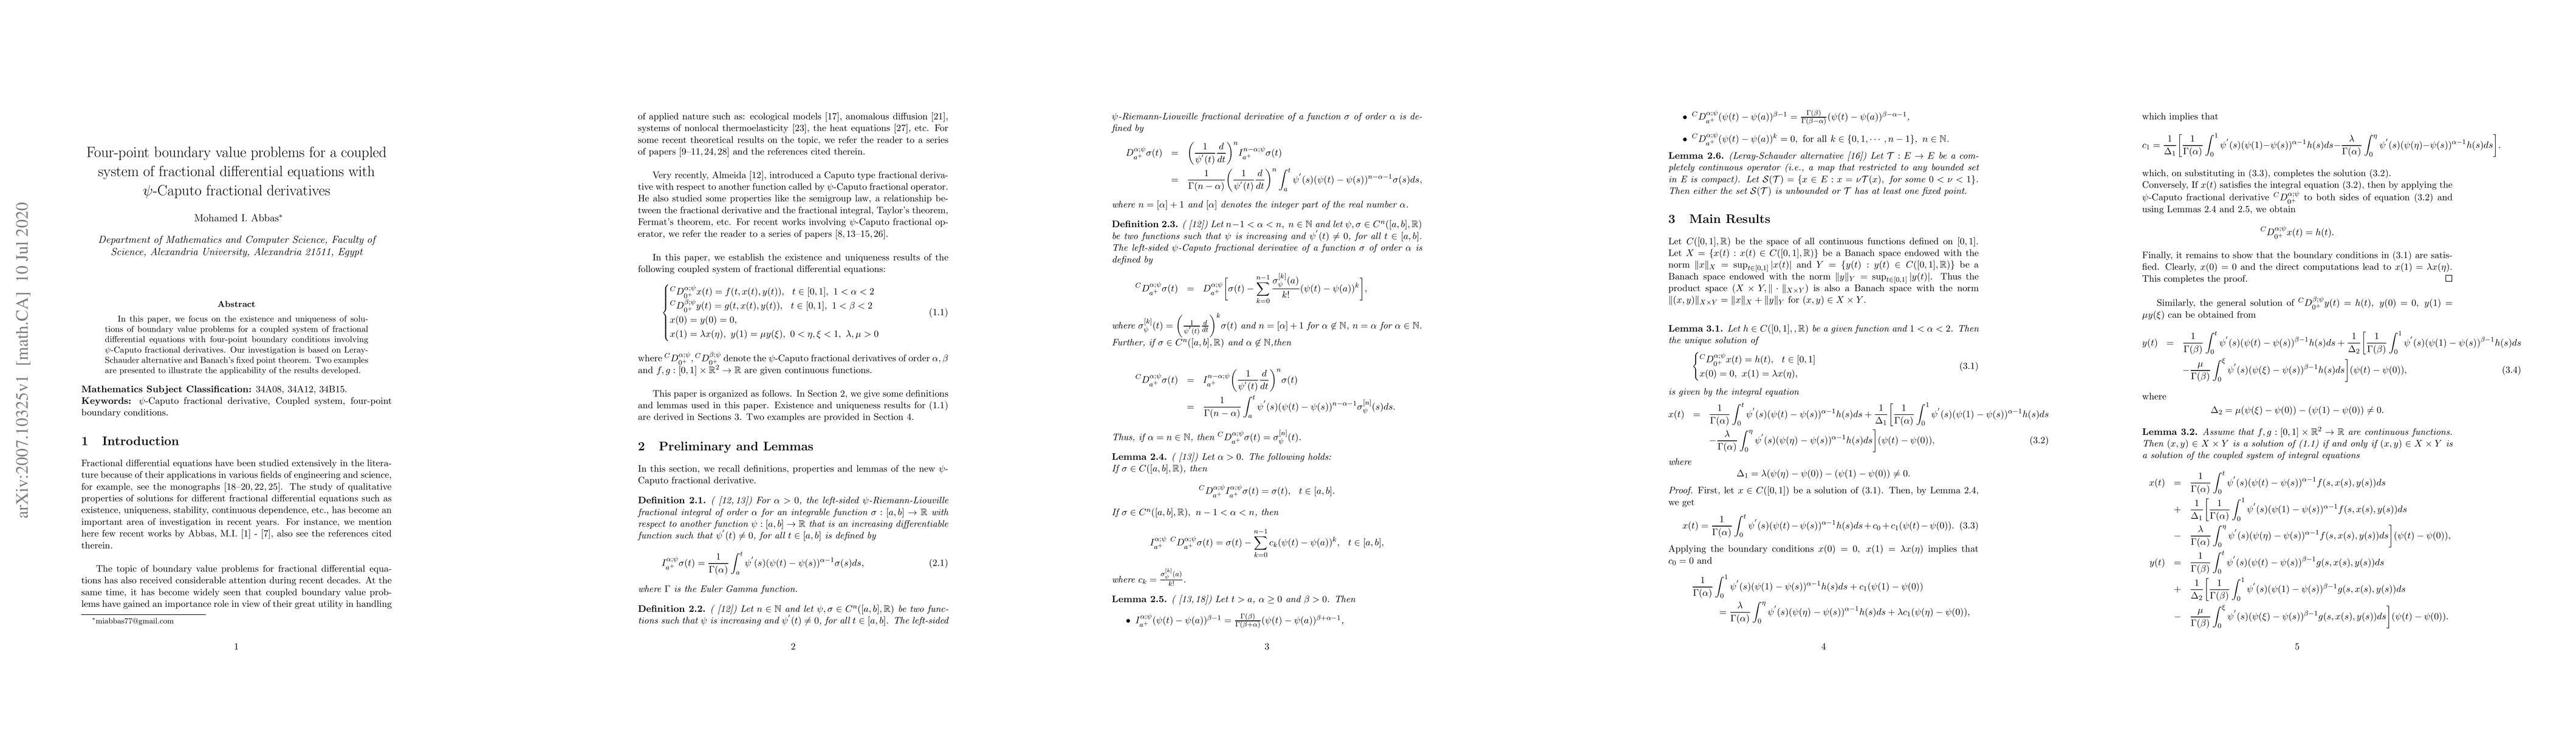 arXiv:2007.10325v1 [math.CA] 10 Jul 2020
Four-point boundary value problems for a coupled
system of fractional differential equations with
ψ-Caputo fractional derivatives
Mohamed I. Abbas*
Department of Mathematics and Computer Science, Faculty of
Science, Alexandria University, Alexandria 21511, Egypt
Abstract
In this paper, we focus on the existence and uniqueness of solu-
tions of boundary value problems for a coupled system of fractional
differential equations with four-point boundary conditions involving
ψ-Caputo fractional derivatives. Our investigation is based on Leray-
Schauder alternative and Banach's fixed point theorem. Two examples
are presented to illustrate the applicability of the results developed.
Mathematics Subject Classification: 34A08, 34A12, 34B15.
Keywords: ψ-Caputo fractional derivative, Coupled system, four-point
boundary conditions.
1 Introduction
Fractional differential equations have been studied extensively in the litera-
ture because of their applications in various fields of engineering and science,
for example, see the monographs [18–20, 22, 25]. The study of qualitative
properties of solutions for different fractional differential equations such as
existence, uniqueness, stability, continuous dependence, etc., has become an
important area of investigation in recent years. For instance, we mention
here few recent works by Abbas, M.I. [1] - [7], also see the references cited
therein.
The topic of boundary value problems for fractional differential equa-
tions has also received considerable attention during recent decades. At the
same time, it has become widely seen that coupled boundary value prob-
lems have gained an importance role in view of their great utility in handling
*miabbas77@gmail.com
1
of applied nature such as: ecological models [17], anomalous diffusion [21],
systems of nonlocal thermoelasticity [23], the heat equations [27], etc. For
some recent theoretical results on the topic, we refer the reader to a series
of papers [9–11, 24, 28] and the references cited therein.
Very recently, Almeida [12], introduced a Caputo type fractional deriva-
tive with respect to another function called by ψ-Caputo fractional operator.
He also studied some properties like the semigroup law, a relationship be-
tween the fractional derivative and the fractional integral, Taylor's theorem,
Fermat's theorem, etc. For recent works involving ψ-Caputo fractional op-
erator, we refer the reader to a series of papers [8, 13–15, 26].
In this paper, we establish the existence and uniqueness results of the
following coupled system of fractional differential equations:
{ ^C D_{0+}^{α;ψ} x(t) = f(t, x(t), y(t)), t ∈ [0, 1], 1 < α < 2
^C D_{0+}^{β;ψ} y(t) = g(t, x(t), y(t)), t ∈ [0, 1], 1 < β < 2
x(0) = y(0) = 0, (1.1)
x(1) = λx(η), y(1) = μy(ξ), 0 < η, ξ < 1, λ, μ > 0
where ^C D_{0+}^{α;ψ}, ^C D_{0+}^{β;ψ} denote the ψ-Caputo fractional derivatives of order α, β
and f, g : [0, 1] × ℝ² → ℝ are given continuous functions.
This paper is organized as follows. In Section 2, we give some definitions
and lemmas used in this paper. Existence and uniqueness results for (1.1)
are derived in Sections 3. Two examples are provided in Section 4.
2 Preliminary and Lemmas
In this section, we recall definitions, properties and lemmas of the new ψ-
Caputo fractional derivative.
Definition 2.1. ( [12, 13]) For α > 0, the left-sided ψ-Riemann-Liouville
fractional integral of order α for an integrable function σ : [a, b] → ℝ with
respect to another function ψ : [a, b] → ℝ that is an increasing differentiable
function such that ψ'(t) ≠ 0, for all t ∈ [a, b] is defined by
I_{a+}^{α;ψ} σ(t) = 1/Γ(α) ∫_a^t ψ'(s)(ψ(t) − ψ(s))^{α−1} σ(s)ds, (2.1)
where Γ is the Euler Gamma function.
Definition 2.2. ( [12]) Let n ∈ ℕ and let ψ, σ ∈ C^n([a, b], ℝ) be two func-
tions such that ψ is increasing and ψ'(t) ≠ 0, for all t ∈ [a, b]. The left-sided
2
ψ-Riemann-Liouville fractional derivative of a function σ of order α is de-
fined by
D_{a+}^{α;ψ} σ(t) = (1/ψ'(t) d/dt)^n I_{a+}^{n−α;ψ} σ(t)
= 1/Γ(n − α) (1/ψ'(t) d/dt)^n ∫_a^t ψ'(s)(ψ(t) − ψ(s))^{n−α−1} σ(s)ds,
where n = [α] + 1 and [α] denotes the integer part of the real number α.
Definition 2.3. ( [12]) Let n−1 < α < n, n ∈ ℕ and let ψ, σ ∈ C^n([a, b], ℝ)
be two functions such that ψ is increasing and ψ'(t) ≠ 0, for all t ∈ [a, b].
The left-sided ψ-Caputo fractional derivative of a function σ of order α is
defined by
^C D_{a+}^{α;ψ} σ(t) = D_{a+}^{α;ψ} [σ(t) − ∑_{k=0}^{n−1} σ_ψ^{[k]}(a)/k! (ψ(t) − ψ(a))^k],
where σ_ψ^{[k]}(t) = (1/ψ'(t) d/dt)^k σ(t) and n = [α] + 1 for α ∉ ℕ, n = α for α ∈ ℕ.
Further, if σ ∈ C^n([a, b], ℝ) and α ∉ ℕ,then
^C D_{a+}^{α;ψ} σ(t) = I_{a+}^{n−α;ψ} (1/ψ'(t) d/dt)^n σ(t)
= 1/Γ(n − α) ∫_a^t ψ'(s)(ψ(t) − ψ(s))^{n−α−1} σ_ψ^{[n]}(s)ds.
Thus, if α = n ∈ ℕ, then ^C D_{a+}^{α;ψ} σ(t) = σ_ψ^{[n]}(t).
Lemma 2.4. ( [13]) Let α > 0. The following holds:
If σ ∈ C([a, b], ℝ), then
^C D_{a+}^{α;ψ} I_{a+}^{α;ψ} σ(t) = σ(t), t ∈ [a, b].
If σ ∈ C^n([a, b], ℝ), n − 1 < α < n, then
I_{a+}^{α;ψ} ^C D_{a+}^{α;ψ} σ(t) = σ(t) − ∑_{k=0}^{n−1} c_k(ψ(t) − ψ(a))^k, t ∈ [a, b],
where c_k = σ_ψ^{[k]}(a)/k!.
Lemma 2.5. ( [13, 18]) Let t > a, α ≥ 0 and β > 0. Then
• I_{a+}^{α;ψ}(ψ(t) − ψ(a))^{β−1} = Γ(β)/Γ(β+α) (ψ(t) − ψ(a))^{β+α−1},
3
• ^C D_{a+}^{α;ψ}(ψ(t) − ψ(a))^{β−1} = Γ(β)/Γ(β−α) (ψ(t) − ψ(a))^{β−α−1},
• ^C D_{a+}^{α;ψ}(ψ(t) − ψ(a))^k = 0, for all k ∈ {0, 1, · · · , n − 1}, n ∈ ℕ.
Lemma 2.6. (Leray-Schauder alternative [16]) Let 𝒯 : E → E be a com-
pletely continuous operator (i.e., a map that restricted to any bounded set
in E is compact). Let 𝒮(𝒯) = {x ∈ E : x = ν𝒯(x), for some 0 < ν < 1}.
Then either the set 𝒮(𝒯) is unbounded or 𝒯 has at least one fixed point.
3 Main Results
Let C([0, 1], ℝ) be the space of all continuous functions defined on [0, 1].
Let X = {x(t) : x(t) ∈ C([0, 1], ℝ)} be a Banach space endowed with the
norm ‖x‖_X = sup_{t∈[0,1]} |x(t)| and Y = {y(t) : y(t) ∈ C([0, 1], ℝ)} be a
Banach space endowed with the norm ‖y‖_Y = sup_{t∈[0,1]} |y(t)|. Thus the
product space (X × Y, ‖ · ‖_{X×Y}) is also a Banach space with the norm
‖(x, y)‖_{X×Y} = ‖x‖_X + ‖y‖_Y for (x, y) ∈ X × Y.
Lemma 3.1. Let h ∈ C([0, 1], , ℝ) be a given function and 1 < α < 2. Then
the unique solution of
{ ^C D_{0+}^{α;ψ} x(t) = h(t), t ∈ [0, 1]
x(0) = 0, x(1) = λx(η), (3.1)
is given by the integral equation
x(t) = 1/Γ(α) ∫_0^t ψ'(s)(ψ(t) − ψ(s))^{α−1} h(s)ds + 1/Δ₁ [1/Γ(α) ∫_0^1 ψ'(s)(ψ(1) − ψ(s))^{α−1} h(s)ds
− λ/Γ(α) ∫_0^η ψ'(s)(ψ(η) − ψ(s))^{α−1} h(s)ds](ψ(t) − ψ(0)), (3.2)
where
Δ₁ = λ(ψ(η) − ψ(0)) − (ψ(1) − ψ(0)) ≠ 0.
Proof. First, let x ∈ C([0, 1]) be a solution of (3.1). Then, by Lemma 2.4,
we get
x(t) = 1/Γ(α) ∫_0^t ψ'(s)(ψ(t) − ψ(s))^{α−1} h(s)ds + c₀ + c₁(ψ(t) − ψ(0)). (3.3)
Applying the boundary conditions x(0) = 0, x(1) = λx(η) implies that
c₀ = 0 and
1/Γ(α) ∫_0^1 ψ'(s)(ψ(1) − ψ(s))^{α−1} h(s)ds + c₁(ψ(1) − ψ(0))
= λ/Γ(α) ∫_0^η ψ'(s)(ψ(η) − ψ(s))^{α−1} h(s)ds + λc₁(ψ(η) − ψ(0)),
4
which implies that
c₁ = 1/Δ₁ [1/Γ(α) ∫_0^1 ψ'(s)(ψ(1)−ψ(s))^{α−1} h(s)ds − λ/Γ(α) ∫_0^η ψ'(s)(ψ(η)−ψ(s))^{α−1} h(s)ds].
which, on substituting in (3.3), completes the solution (3.2).
Conversely, If x(t) satisfies the integral equation (3.2), then by applying the
ψ-Caputo fractional derivative ^C D_{0+}^{α;ψ} to both sides of equation (3.2) and
using Lemmas 2.4 and 2.5, we obtain
^C D_{0+}^{α;ψ} x(t) = h(t).
Finally, it remains to show that the boundary conditions in (3.1) are satis-
fied. Clearly, x(0) = 0 and the direct computations lead to x(1) = λx(η).
This completes the proof. □
Similarly, the general solution of ^C D_{0+}^{β;ψ} y(t) = h(t), y(0) = 0, y(1) =
μy(ξ) can be obtained from
y(t) = 1/Γ(β) ∫_0^t ψ'(s)(ψ(t) − ψ(s))^{β−1} h(s)ds + 1/Δ₂ [1/Γ(β) ∫_0^1 ψ'(s)(ψ(1) − ψ(s))^{β−1} h(s)ds
− μ/Γ(β) ∫_0^ξ ψ'(s)(ψ(ξ) − ψ(s))^{β−1} h(s)ds](ψ(t) − ψ(0)), (3.4)
where
Δ₂ = μ(ψ(ξ) − ψ(0)) − (ψ(1) − ψ(0)) ≠ 0.
Lemma 3.2. Assume that f, g : [0, 1] × ℝ² → ℝ are continuous functions.
Then (x, y) ∈ X × Y is a solution of (1.1) if and only if (x, y) ∈ X × Y is
a solution of the coupled system of integral equations
x(t) = 1/Γ(α) ∫_0^t ψ'(s)(ψ(t) − ψ(s))^{α−1} f(s, x(s), y(s))ds
+ 1/Δ₁ [1/Γ(α) ∫_0^1 ψ'(s)(ψ(1) − ψ(s))^{α−1} f(s, x(s), y(s))ds
− λ/Γ(α) ∫_0^η ψ'(s)(ψ(η) − ψ(s))^{α−1} f(s, x(s), y(s))ds](ψ(t) − ψ(0)),
y(t) = 1/Γ(β) ∫_0^t ψ'(s)(ψ(t) − ψ(s))^{β−1} g(s, x(s), y(s))ds
+ 1/Δ₂ [1/Γ(β) ∫_0^1 ψ'(s)(ψ(1) − ψ(s))^{β−1} g(s, x(s), y(s))ds
− μ/Γ(β) ∫_0^ξ ψ'(s)(ψ(ξ) − ψ(s))^{β−1} g(s, x(s), y(s))ds](ψ(t) − ψ(0)).
5